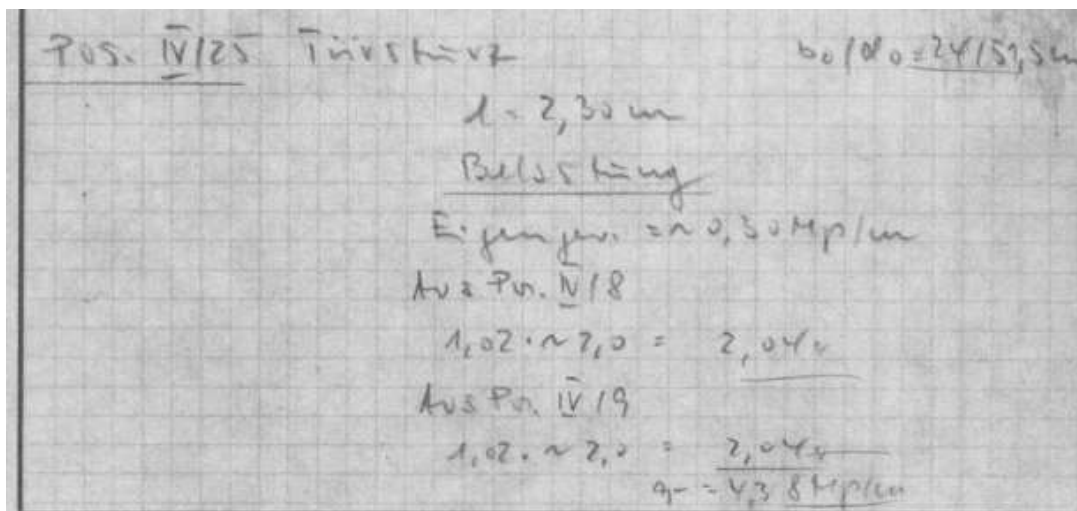 Pos. IV/25 Türsturz b₀/d₀ = 24/51,5 cm
l = 2,30 m
Belastung
Eigengew. = ~ 0,30 Mp/m
Aus Pos. IV/8
1,02 · ~ 2,0 = 2,04 "
Aus Pos. IV/9
1,02 · ~ 2,0 = 2,04 "
q = 4,38 Mp/m